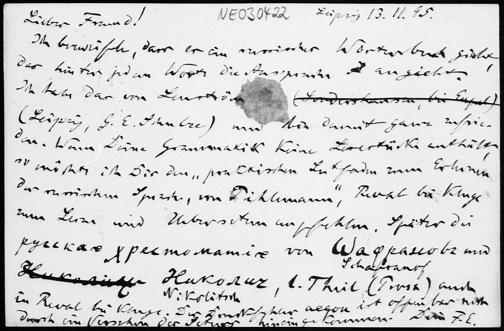 Lieber Freund!
NE030422
Leipzig 13. II. 95.
Ich bezweifle, dass er ein russisches Wörterbuch giebt,
das hinter jedem Worte die Aussprache angiebt
Ich habe das von Lenström (Sondershausen, bei Eupel)
(Leipzig, G. E. Schulze) und bin damit ganz zufrie-
den. Wenn Deine Grammatik keine Lesestücke enthält,
so möchte ich Dir den „praktischen Leitfaden zum Erlernen
der russischen Sprache, von Pihlemann", Reval bei Kluge
zum Lesen und Uebersetzen empfehlen. Später die
русская хрестоматія von Шафрановъ und
Schafranof
Николичъ, 1. Theil (Prosa) auch
Nikolitsch
in Reval bei Kluge. Die ist offenbar nicht
durch ein Versehen des Setzers hineingekommen Dein F. E.